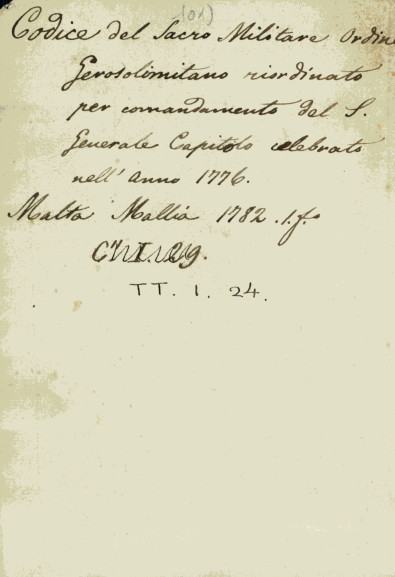 (01)
Codice del Sacro Militare Ordine
Gerosolimitano riordinato
per comandamento del S.
Generale Capitolo celebrato
nell' anno 1776.
Malta Mallia 1782 .1.f.o
TT. 1. 24.